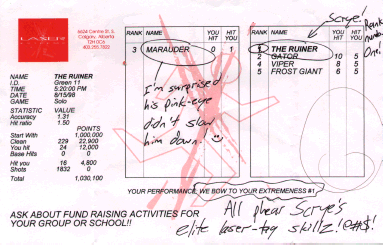 LASER
6624 Centre St. S.
Calgary, Alberta
T2H 0C6
NAME THE RUINER
I.D. Green 11
TIME 5:20:00 PM
DATE 8/15/98
GAME Solo
STATISTIC VALUE
Accuracy 1.31
Hit ratio 1.50
POINTS
Start With 1,000,000
Clean 229 22,900
You hit 24 12,000
Base Hits 0 0
Hit you 16 4,800
Shots 1832 0
Total 1,030,100
RANK NAME YOU HIT HIT YOU
3 MARAUDER 0 1
I'm surprised
his pink-eye
didn't slow
him down!
Scrye!
Rank
number
One!
RANK NAME YOU HIT HIT YOU
1 THE RUINER
2 GATOR 10 5
4 VIPER 8 5
5 FROST GIANT 6 5
YOUR PERFORMANCE: WE BOW TO YOUR EXTREMENESS #1
ASK ABOUT FUND RAISING ACTIVITIES FOR
YOUR GROUP OR SCHOOL!!
All phear Scrye's
elite laser-tag skillz!@#$!